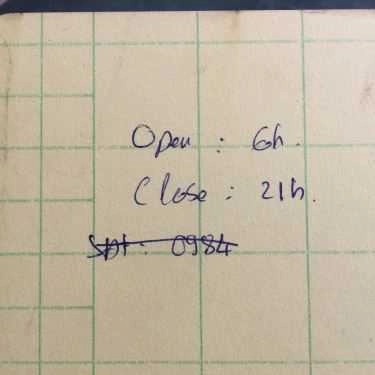 Open : 6h.
Close : 21h.
Sđt : 0984